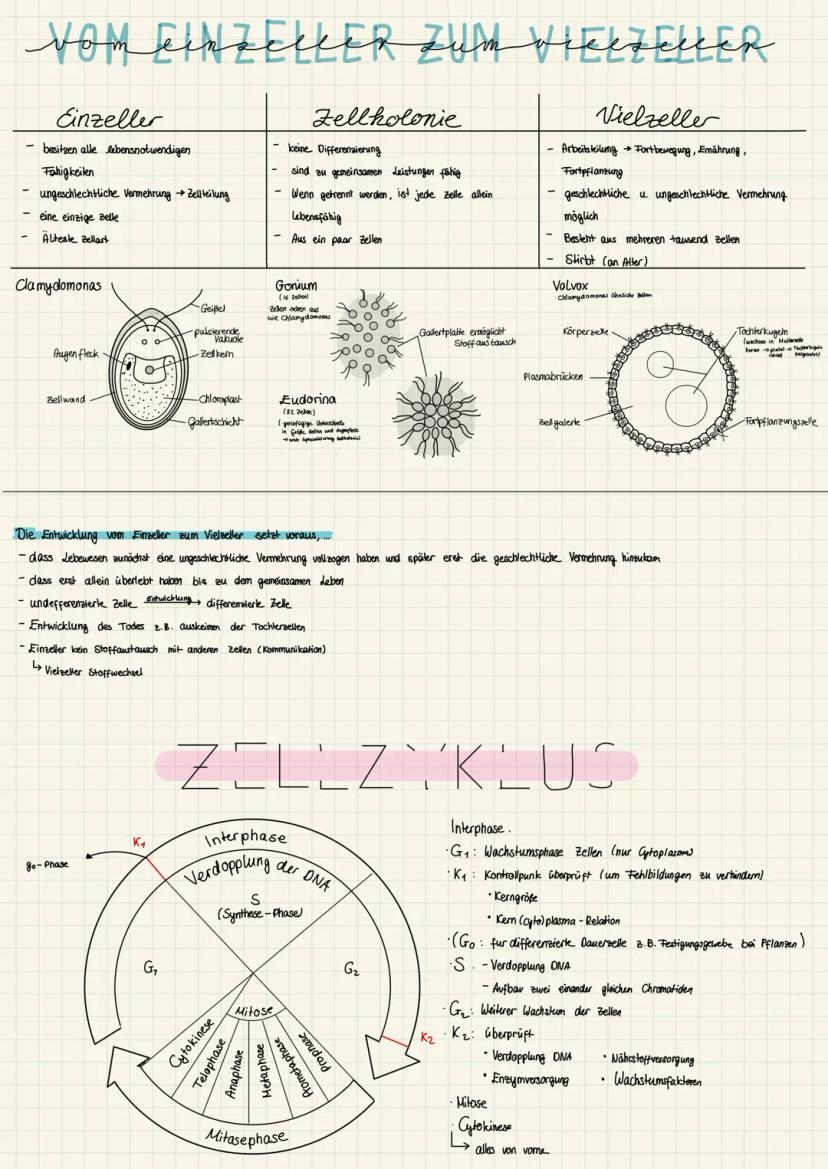 VOM EINZELLER ZUM VIELZELLER
vom einzeller zum vielzeller
Einzeller
- besitzen alle lebensnotwendigen
Fähigkeiten
- ungeschlechtliche Vermehrung → Zellteilung
- eine einzige Zelle
- Älteste Zellart
Zellkolonie
- keine Differenzierung
- sind zu gemeinsamen Leistungen fähig
- Wenn getrennt werden, ist jede Zelle allein
lebensfähig
- Aus ein paar Zellen
Vielzeller
- Arbeitsteilung → Fortbewegung, Ernährung,
Fortpflanzung
- geschlechtliche u. ungeschlechtliche Vermehrung
möglich
- Besteht aus mehreren tausend Zellen
- Stirbt (an Alter)
Clamydomonas
Geißel
pulsierende
Vakuole
Augenfleck
Zellkern
Zellwand
Chloroplast
Gallertschicht
Gonium
(16 Zellen)
Zellen sehen aus
wie Chlamydomonas
Gallertplatte ermöglicht
Stoffaustausch
Eudorina
(32 Zellen)
(geringfügige Unterschiede
in Größe Zellen und Augenfleck
→ erste Spezialisierung Zellkolonie)
Volvox
· Clamydomonas ähnliche Zellen
Körperzelle
Tochterkugeln
(wachsen in Mutterode
Plasmabrücken
Zellgalerte
Fortpflanzungszelle
Die Entwicklung vom Einzeller zum Vielzeller setzt voraus, ...
- dass Lebewesen zunächst eine ungeschlechtliche Vermehrung vollzogen haben und später erst die geschlechtliche Vermehrung hinzukam
- dass erst allein überlebt haben bis zu dem gemeinsamen Leben
- undefferenzierte Zelle Entwicklung → differenzierte Zelle
- Entwicklung des Todes z.B. auskeimen der Tochterzellen
- Einzeller kein Stoffaustausch mit anderen Zellen (Kommunikation)
↳ Vielzeller Stoffwechsel
ZELLZYKLUS
K1
go-Phase
Interphase
Verdopplung der DNA
S
(Synthese-Phase)
G1
G2
K2
Mitose
Cytokinese
Telophase
Anaphase
Metaphase
Prometaphase
Prophase
Mitasephase
Interphase.
· G1: Wachstumsphase Zellen (nur Cytoplasma)
· K1: Kontrollpunk überprüft (um Fehlbildungen zu verhindern)
• Kerngröße
• Kern(cyto)plasma-Relation
· (G0: für differenzierte Dauerzelle z.B. Festigungsgewebe bei Pflanzen)
· S. - Verdopplung DNA
- Aufbau zwei einander gleichen Chromatiden
· G2: Weiterer Wachstum der Zellen
· K2: überprüft
• Verdopplung DNA • Nährstoffversorgung
• Enzymversorgung • Wachstumsfaktoren
· Mitose
· Cytokinese
↳ alles von vorne